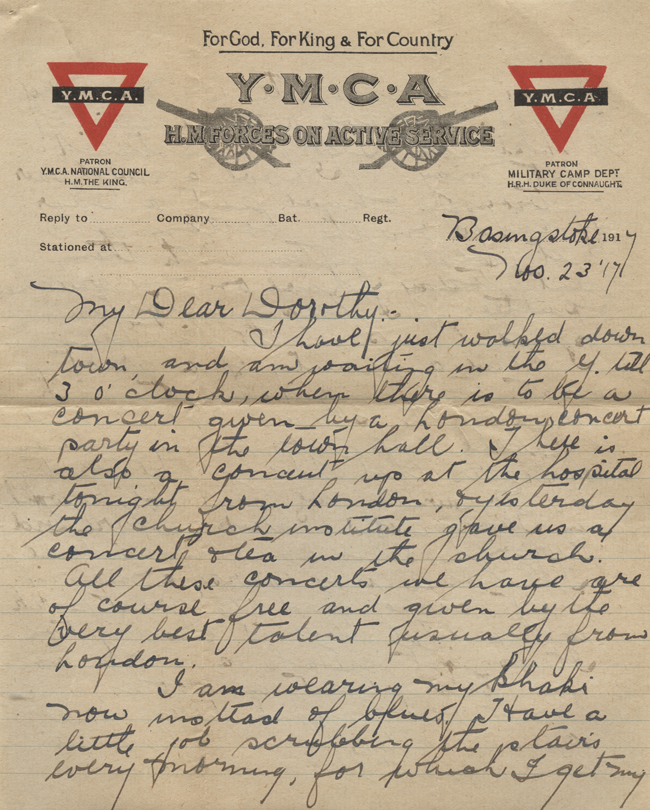 For God, For King & For Country
Y·M·C·A
H.M FORCES ON ACTIVE SERVICE
Y.M.C.A.
PATRON
Y.M.C.A. NATIONAL COUNCIL
H.M. THE KING.
Y.M.C.A.
PATRON
MILITARY CAMP DEPT
H.R.H. DUKE OF CONNAUGHT.
Reply to Company Bat. Regt.
Stationed at
Basingstoke 1917
Nov. 23 '17
My Dear Dorothy.-
I have just walked down
town, and am waiting in the Y. till
3 o'clock, when there is to be a
concert given by a London concert
party in the town hall. There is
also a concert up at the hospital
tonight from London, & yesterday
the church institute gave us a
concert & tea in the church.
All these concerts we have are
of course free and given by the
very best talent usually from
London.
I am wearing my Khaki
now instead of blues. I have a
little job scrubbing the stairs
every morning, for which I get my